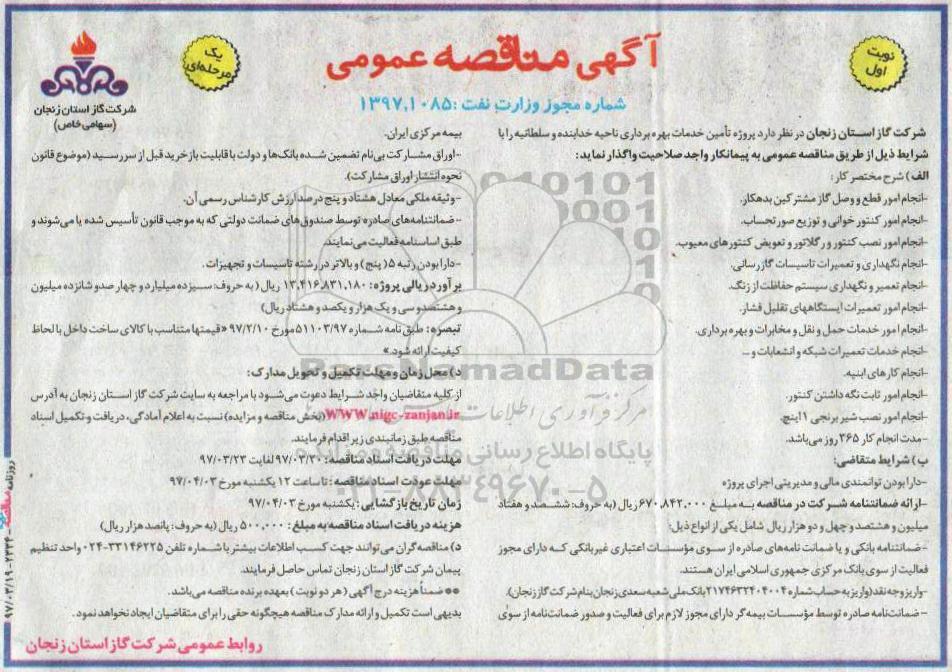 نوبت اول
آگهی مناقصه عمومی
یک مرحله‌ای
شماره مجوز وزارت نفت :۱۳۹۷,۱۰۸۵
شرکت گاز استان زنجان
(سهامی خاص)
شرکت گاز استان زنجان در نظر دارد پروژه تأمین خدمات بهره برداری ناحیه خدابنده و سلطانیه را با
شرایط ذیل از طریق مناقصه عمومی به پیمانکار واجد صلاحیت واگذار نماید:
الف) شرح مختصر کار:
-انجام امور قطع و وصل گاز مشترکین بدهکار.
-انجام امور کنتور خوانی و توزیع صورتحساب.
-انجام امور نصب کنتور و رگلاتور و تعویض کنتورهای معیوب.
-انجام نگهداری و تعمیرات تاسیسات گازرسانی.
-انجام تعمیر و نگهداری سیستم حفاظت از زنگ.
-انجام امور تعمیرات ایستگاههای تقلیل فشار.
-انجام امور خدمات حمل و نقل و مخابرات و بهره برداری.
-انجام خدمات تعمیرات شبکه و انشعابات و ...
-انجام کارهای ابنیه.
-انجام امور ثابت نگه داشتن کنتور.
-انجام امور نصب شیر برنجی ۱ اینچ.
-مدت انجام کار ۳۶۵ روز می‌باشد.
ب) شرایط متقاضی:
-دارا بودن توانمندی مالی و مدیریتی اجرای پروژه
-ارائه ضمانتنامه شرکت در مناقصه به مبلغ ۶۷۰,۸۴۲,۰۰۰ ریال (به حروف: ششصد و هفتاد
میلیون و هشتصد و چهل و دو هزار ریال شامل یکی از انواع ذیل:
-ضمانتنامه بانکی و یا ضمانت نامه‌های صادره از سوی مؤسسات اعتباری غیربانکی که دارای مجوز
فعالیت از سوی بانک مرکزی جمهوری اسلامی ایران هستند.
-واریز وجه نقد (واریز به حساب شماره ۲۱۷۴۶۳۲۴۰۴۰۰۴ بانک ملی شعبه سعدی زنجان بنام شرکت گاز زنجان).
-ضمانت‌نامه صادره توسط مؤسسات بیمه‌گر دارای مجوز لازم برای فعالیت و صدور ضمانت‌نامه از سوی
بیمه مرکزی ایران.
-اوراق مشارکت بی‌نام تضمین شده بانک‌ها و دولت با قابلیت بازخرید قبل از سررسید (موضوع قانون
نحوه انتشار اوراق مشارکت).
-وثیقه ملکی معادل هشتاد و پنج درصد ارزش کارشناس رسمی آن.
-ضمانتنامه‌های صادره توسط صندوق‌های ضمانت دولتی که به موجب قانون تأسیس شده یا می‌شوند و
طبق اساسنامه فعالیت می‌نمایند.
-دارا بودن رتبه ۵ (پنج) و بالاتر در رشته تاسیسات و تجهیزات.
برآورد ریالی پروژه: ۱۳,۴۱۶,۸۳۱,۱۸۰ ریال (به حروف: سیزده میلیارد و چهارصد و شانزده میلیون
و هشتصد و سی و یک هزار و یکصد و هشتاد ریال)
تبصره: طبق نامه شماره ۵۱۱۰۳/۹۷ مورخ ۹۷/۲/۱۰ «قیمتها متناسب با کالای ساخت داخل با لحاظ
کیفیت ارائه شود.»
د) محل زمان و مهلت تکمیل و تحویل مدارک:
از کلیه متقاضیان واجد شرایط دعوت می‌شود با مراجعه به سایت شرکت گاز استان زنجان به آدرس
www.nigc-zanjan.ir (بخش مناقصه و مزایده) نسبت به اعلام آمادگی، دریافت و تکمیل اسناد
مناقصه طبق زمانبندی زیر اقدام فرمایند.
مهلت دریافت اسناد مناقصه: ۹۷/۰۳/۲۰ لغایت ۹۷/۰۳/۲۳
مهلت عودت اسناد مناقصه: تا ساعت ۱۲ یکشنبه مورخ ۹۷/۰۴/۰۳
زمان تاریخ بازگشایی: یکشنبه مورخ ۹۷/۰۴/۰۳
هزینه دریافت اسناد مناقصه به مبلغ: ۵۰۰,۰۰۰ ریال (به حروف: پانصد هزار ریال)
د) مناقصه‌گران می‌توانند جهت کسب اطلاعات بیشتر با شماره تلفن ۳۳۱۴۶۲۲۵-۰۲۴ واحد تنظیم
پیمان شرکت گاز استان زنجان تماس حاصل فرمایند.
** ضمناً هزینه درج آگهی (هر دو نوبت) بعهده برنده مناقصه می‌باشد.
بدیهی است تکمیل و ارائه مدارک مناقصه هیچگونه حقی را برای متقاضیان ایجاد نخواهد نمود.
روابط عمومی شرکت گاز استان زنجان
روزنامه مناقصه - ۲۳۳۴ - ۹۷/۰۳/۱۹
ParsNamadData
مرکز فرآوری اطلاعات
پایگاه اطلاع رسانی مناقصه و مزایده
۰۲۱-۸۸۳۴۹۶۷۰-۵